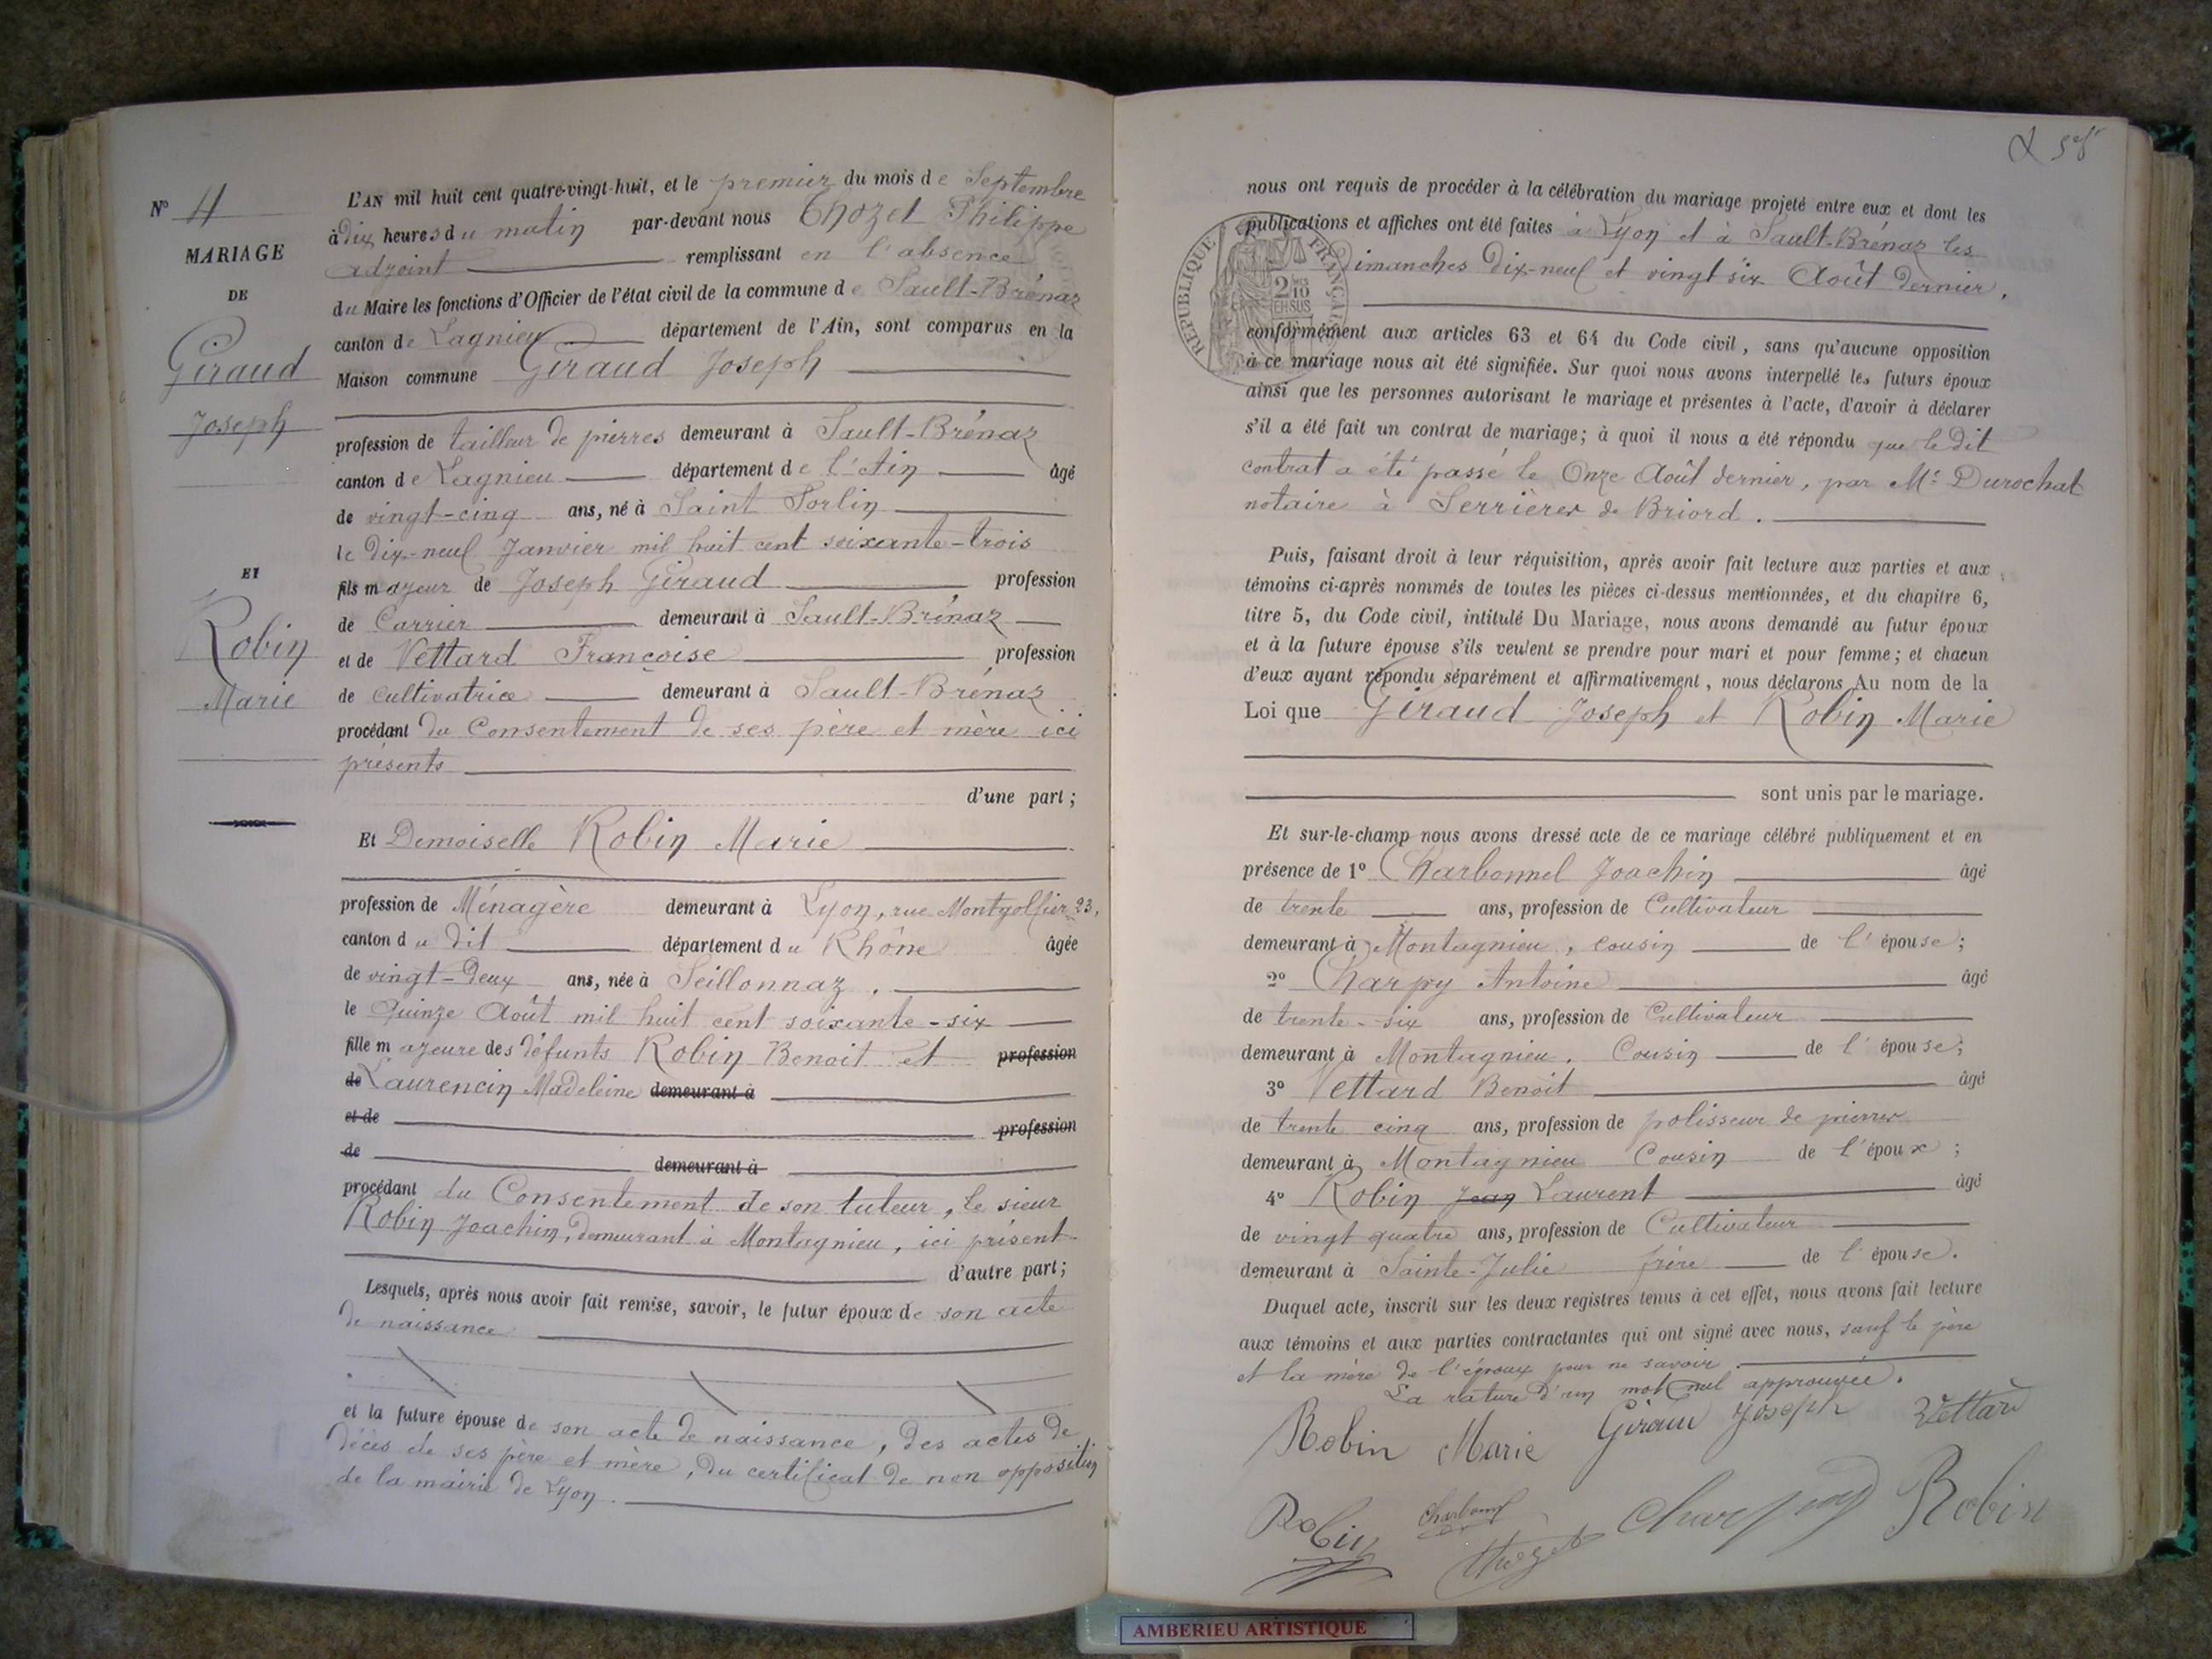 N° 4
MARIAGE
DE
Giraud
Joseph
ET
Robin
Marie
L'AN mil huit cent quatre-vingt-huit, et le premier du mois de Septembre
à dix heures du matin par-devant nous Thozet Philippe
adjoint remplissant en l'absence
du Maire les fonctions d'Officier de l'état civil de la commune de Sault-Brénaz
canton de Lagnieu département de l'Ain, sont comparus en la
Maison commune Giraud Joseph
profession de tailleur de pierres demeurant à Sault-Brénaz
canton de Lagnieu département de l'Ain âgé
de vingt-cinq ans, né à Saint Sorlin
le dix-neuf Janvier mil huit cent soixante-trois
fils majeur de Joseph Giraud profession
de Carrier demeurant à Sault-Brénaz
et de Vettard Françoise profession
de Cultivatrice demeurant à Sault-Brénaz
procédant du Consentement de ses père et mère ici
présents
d'une part;
Et Demoiselle Robin Marie
profession de Ménagère demeurant à Lyon, rue Montgolfier 23,
canton du dit département du Rhône âgée
de vingt-deux ans, née à Seillonnaz.
le Quinze Août mil huit cent soixante-six
fille majeure des défunts Robin Benoit et profession
de Laurencin Madeleine demeurant à
et de profession
de demeurant à
procédant du Consentement de son tuteur, le sieur
Robin Joachin, demeurant à Montagnieu, ici présent
d'autre part;
Lesquels, après nous avoir fait remise, savoir, le futur époux de son acte
de naissance
et la future épouse de son acte de naissance, des actes de
décès de ses père et mère, du certificat de non opposition
de la mairie de Lyon.
nous ont requis de procéder à la célébration du mariage projeté entre eux et dont les
publications et affiches ont été faites à Lyon et à Sault-Brénaz les
Dimanches Dix-neuf et vingt six Août dernier,
RÉPUBLIQUE FRANÇAISE
2/10
EN SUS
conformément aux articles 63 et 64 du Code civil, sans qu'aucune opposition
à ce mariage nous ait été signifiée. Sur quoi nous avons interpellé les futurs époux
ainsi que les personnes autorisant le mariage et présentes à l'acte, d'avoir à déclarer
s'il a été fait un contrat de mariage; à quoi il nous a été répondu que le dit
contrat a été passé le Onze Août dernier, par Me Durochat
notaire à Serrières de Briord.
Puis, faisant droit à leur réquisition, après avoir fait lecture aux parties et aux
témoins ci-après nommés de toutes les pièces ci-dessus mentionnées, et du chapitre 6,
titre 5, du Code civil, intitulé Du Mariage, nous avons demandé au futur époux
et à la future épouse s'ils veulent se prendre pour mari et pour femme; et chacun
d'eux ayant répondu séparément et affirmativement, nous déclarons Au nom de la
Loi que Giraud Joseph et Robin Marie
sont unis par le mariage.
Et sur-le-champ nous avons dressé acte de ce mariage célébré publiquement et en
présence de 1° Charbonnel Joachin âgé
de trente ans, profession de Cultivateur
demeurant à Montagnieu, cousin de l'épouse;
2° Charpy Antoine âgé
de trente-six ans, profession de Cultivateur
demeurant à Montagnieu. Cousin de l'épouse;
3° Vettard Benoit âgé
de trente cinq ans, profession de polisseur de pierres
demeurant à Montagnieu Cousin de l'époux;
4° Robin Jean Laurent âgé
de vingt quatre ans, profession de Cultivateur
demeurant à Sainte-Julie frère de l'épouse.
Duquel acte, inscrit sur les deux registres tenus à cet effet, nous avons fait lecture
aux témoins et aux parties contractantes qui ont signé avec nous, sauf le père
et la mère de l'époux pour ne savoir.
La rature d'un mot nul approuvée.
Robin Marie Giraud Joseph Vettard
Robin Charbonnel Thozet Charpy Robin
AMBERIEU ARTISTIQUE